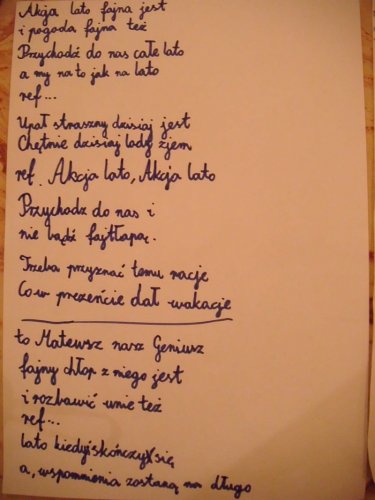 Akcja lato fajna jest
i pogoda fajna też
Przychodź do nas całe lato
a my na to jak na lato
ref...
Upał straszny dzisiaj jest
Chętnie dzisiaj lody zjem
ref. Akcja lato, Akcja lato
Przychodz do nas i
nie bądź fajtłapą.
Trzeba przyznać temu racje
Co w prezencie dał wakacje
to Mateusz nasz Geniusz
fajny chłop z niego jest
i rozbawić umie też
ref...
lato kiedyś skończy się
a, wspomnienia zostaną na długo